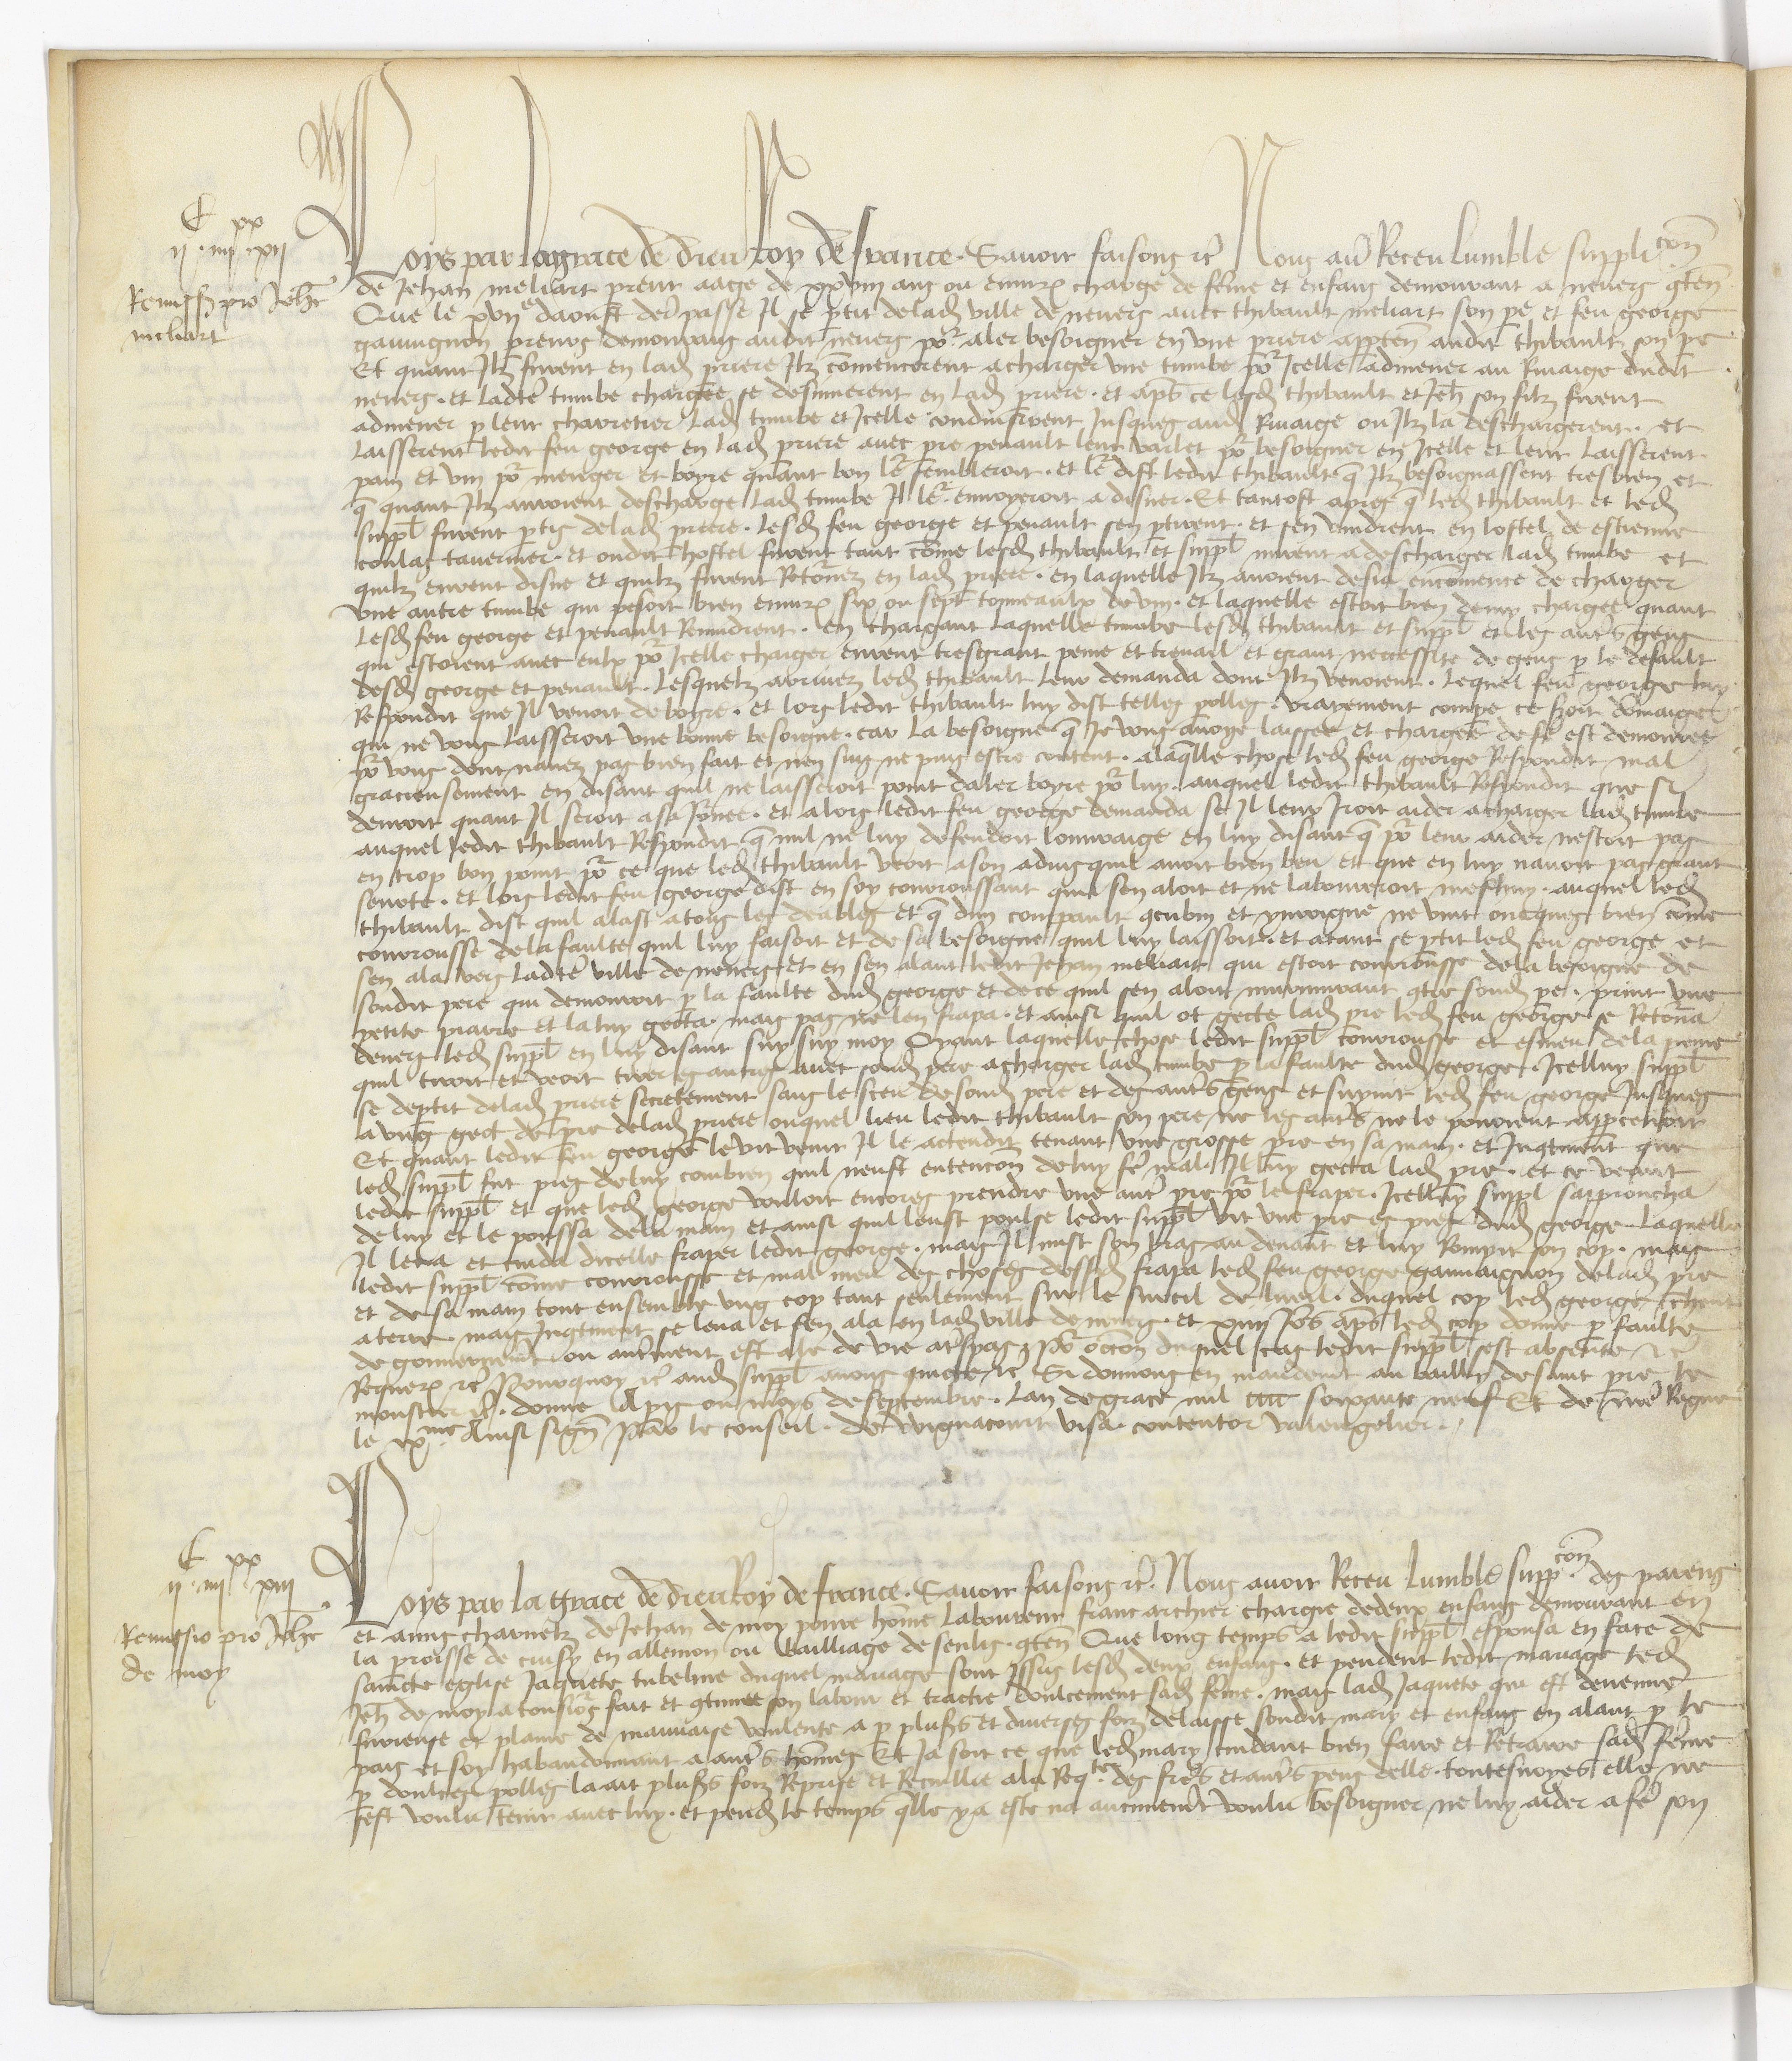 C xx
ii . iiii . xii
Remissio pro Joh̄e
meliart
Loys par la grace de dieu Roy de france . Savoir faisons etc̄ Nous avōs Receu lumble supplicōn
de Jehan meliart prerer aage de xxviii ans ou environ charge de fēme et enfans demourant a nevers 9ten̄
Que le xviie daoust der̄ passe Il se p̄tit de lad̄ ville de nevers avec thibault meliart son p̄e et feu george
gauvignon prerers demourans audit nevers po᷑ aler besoigner en une priere apptēn audit thibault son pe
Et quant Ilz furent en lad̄ priere Ilz cōmencerent a charger une tumbe po᷑ Icelle admener au Rivaige dudit
nevers . et ladte tumbe chargee se desiunerent en lad̄ priere . et ap̄s ce lesd̄ thibault et Jeh̄ son filz firent
admener p̄ leur charretier lad̄ tumbe et Icelle conduisirent Jusques aud̄ Rivaige ou Ilz la deschargerent . et
laisserent ledit feu george en lad̄ priere avec pre penault leur varlet po᷑ besoigner en Icelle et leur laisserent
pain et vin po᷑ menger et boyre quant bon le᷑ sembleroit . et le᷑ dist ledit thibault q̄ Ilz besoignassent tresbien et
q̄ quant Ilz auroient descharge lad̄ tumbe Il le᷑ envoyeroit a disner . Et tantost apres q̄ led̄ thibault et led̄
supp̄l furent p̄tis de lad̄ priere . lesd̄ feu george et penault sen p̄tirent . et sen vindrent en lostel de estienne
coulas tavernier . et oudit hostel furent tant cōme lesd̄ thibault et supp̄l mirent a descharger lad̄ tumbe et
quilz eurent disne et quilz furent Reto᷑nez en lad̄ priere . en laquelle Ilz avoient desia encōmence de charger
une autre tumbe qui pesoit bien environ six ou sept tonneaulx de vin . et laquelle estoit bien demy chargee quant
lesd̄ feu george et penault Revindrent . en chargant laquelle tumbe lesd̄ thibault et supp̄l et les aut̄s gens
qui estoient avec eulx po᷑ Icelle charger eurent tresgrant peine et travail et grant necessite de gens p̄ le default
desd̄ george et penault . Lesquelz arrivez led̄ thibault leur demanda dont Ilz venoient . Lequel feu george luy
Respondit que Il venoit de boyre . et lors ledit thibault luy dist telles polles . vrayement compe ce seroit dōmaige
qui ne vous laisseroit une bonne besoigne . car la besoigne q̄ Je vous avoye laissee et chargee de fe᷑ est demouree
po᷑ vous dont navez pas bien fait et nen suis ne puis estre content . a laq̄lle chose led̄ feu george Respondit mal
gracieusement en disant quil ne laisseroit point daler boyre po᷑ luy . auquel ledit thibault Respondit que si
devoit quant Il seroit a sa Jo᷑nee . et alors ledit feu george demanda se Il leur Iroit aider a charger lad̄ tumbe
auquel ledit thibault Respondit q̄ nul ne luy defendoit louvraige en luy disant q̄ po᷑ leur aider nestoit pas
en trop bon point po᷑ ce que led̄ thibault veoit a son advis quil avoit bien beu et que en luy navoit pas grant
seurete . et lors ledit feu george dist en soy courroussant quil sen aloit et ne laboureroit meshuy . auquel led̄
thibault dist quil alast a tous les deables et q̄ dun et yvroigne ne vint oncques bien cōme
courrousse de la faulte quil luy faisoit et de sa besoigne quil luy laissoit . et atant se p̄tit led̄ feu george et
sen ala vers ladte ville de nevers . et en sen alant ledit Jehan meliart qui estoit courrousse de la besoigne de
sondit pere qui demouroit p̄ la faulte dud̄ george et de ce quil sen aloit murmurant 9tre sond̄ pe . print une
petite pierre et la luy gecta . mais pas ne len frapa . et ainsi quil ot gecte lad̄ pre led̄ feu george se Reto᷑na
devers led̄ supp̄l en luy disant suy suy moy Oyant laquelle chose ledit supp̄l courrousse et esmeu de la peine
quil avoit et veoit avoir es autres avec sond̄ pere a charger lad̄ tumbe p̄ la faulte dud̄ george . Icelluy supp̄l
se dep̄tit de lad̄ priere secretement sans le sceu de sond̄ pere et des aut̄s gens et suyvit led̄ feu george Jusques
a ung gect de pre de lad̄ priere ouquel lieu ledit thibault son pere ne les aut̄s ne le povoient appcevoir
Et quant ledit feu george le vit venir Il le actendit tenant une grosse pre en sa main . et Incontinent que
led̄ supp̄l fut pres de luy combien quil neust entencōn de luy fe᷑ mal . Il luy gecta lad̄ pre . et ce veant
ledit supp̄l et que led̄ george vouloit encores prendre une aut̄ pre po᷑ le fraper . Icelluy supp̄l sapproucha
de luy et le poussa de la main et ainsi quil leust poulse ledit supp̄l vit une pre es piez dud̄ george laquelle
Il leva et cuida dicelle fraper ledit george . mais Il mist son bras au devant et luy Rompit son cop . mais
ledit supp̄l cōme courrousse et mal meu des choses dessusd̄ frapa led̄ feu george gauvaignon de lad̄ pre
et de sa main tout ensemble ung cop tant seulement sur le surcil de lueil . duquel cop led̄ george cheut
a terre . mais Incontinent se leva et sen ala en lad̄ ville de nevers . et xiiii Jo᷑s ap̄s led̄ cop donne p̄ faulte
de gouvernemēt ou autrement est ale de vie a trespas . po᷑ occōn duquel cas ledit supp̄l sest absente etc̄
Requerāt etc̄ Pourquoy etc̄ aud̄ supp̄l avons quicte etc̄ Si donnons en mandemēt au bailly de saint pre le
monstier etc̄ . donne A p̄is ou moys de septembre . Lan de grace mil cccc soixante neuf Et de n̄re Regne
le ixme Ainsi signe Par le conseil . de wignacourt visa . contentor valengelier .
C xx
ii . iiii . xiii
Remissio pro Joh̄e
de moy
Loys par la grace de dieu Roy de france . Savoir faisons etc̄ . Nous avoir Receu lumble suppcōn . des parens
et amis charnelz de Jehan de moy povre hōme laboureur franc archier chargie de deux enfans demourant en
la p̄roisse de cuisy en allemon ou bailliage de senlis . 9ten̄ Que long temps a ledit supp̄l espousa en face de
saincte eglise Jaquete tubeline duquel mariage sont yssus lesd̄ deux enfans . et pendent ledit mariage led̄
Jeh̄ de moy a tousio᷑s fait et 9tinue son labour et traictie doulcement sad̄ fēme . mais lad̄ Jaquete qui est devenue
furieuse et plaine de mauvaise voulente a p̄ plus̄s et diverses foiz delaisse sondit mary et enfans en alant p̄ le
pais et soy habandonnant a aut̄s hōmes Et Ja soit ce que led̄ mary cuidant bien faire et Retraire sad̄ fēme
p̄ doulces polles la ait plus̄s foiz Reprise et Recuillie a la Reqte des freres et aut̄s pens delle . toutesvoyes elle ne
sest voulu tenir avec luy . et pend̄ le temps q̄lle y a este na aucunemēt voulu besoigner ne luy aider a fe᷑ son